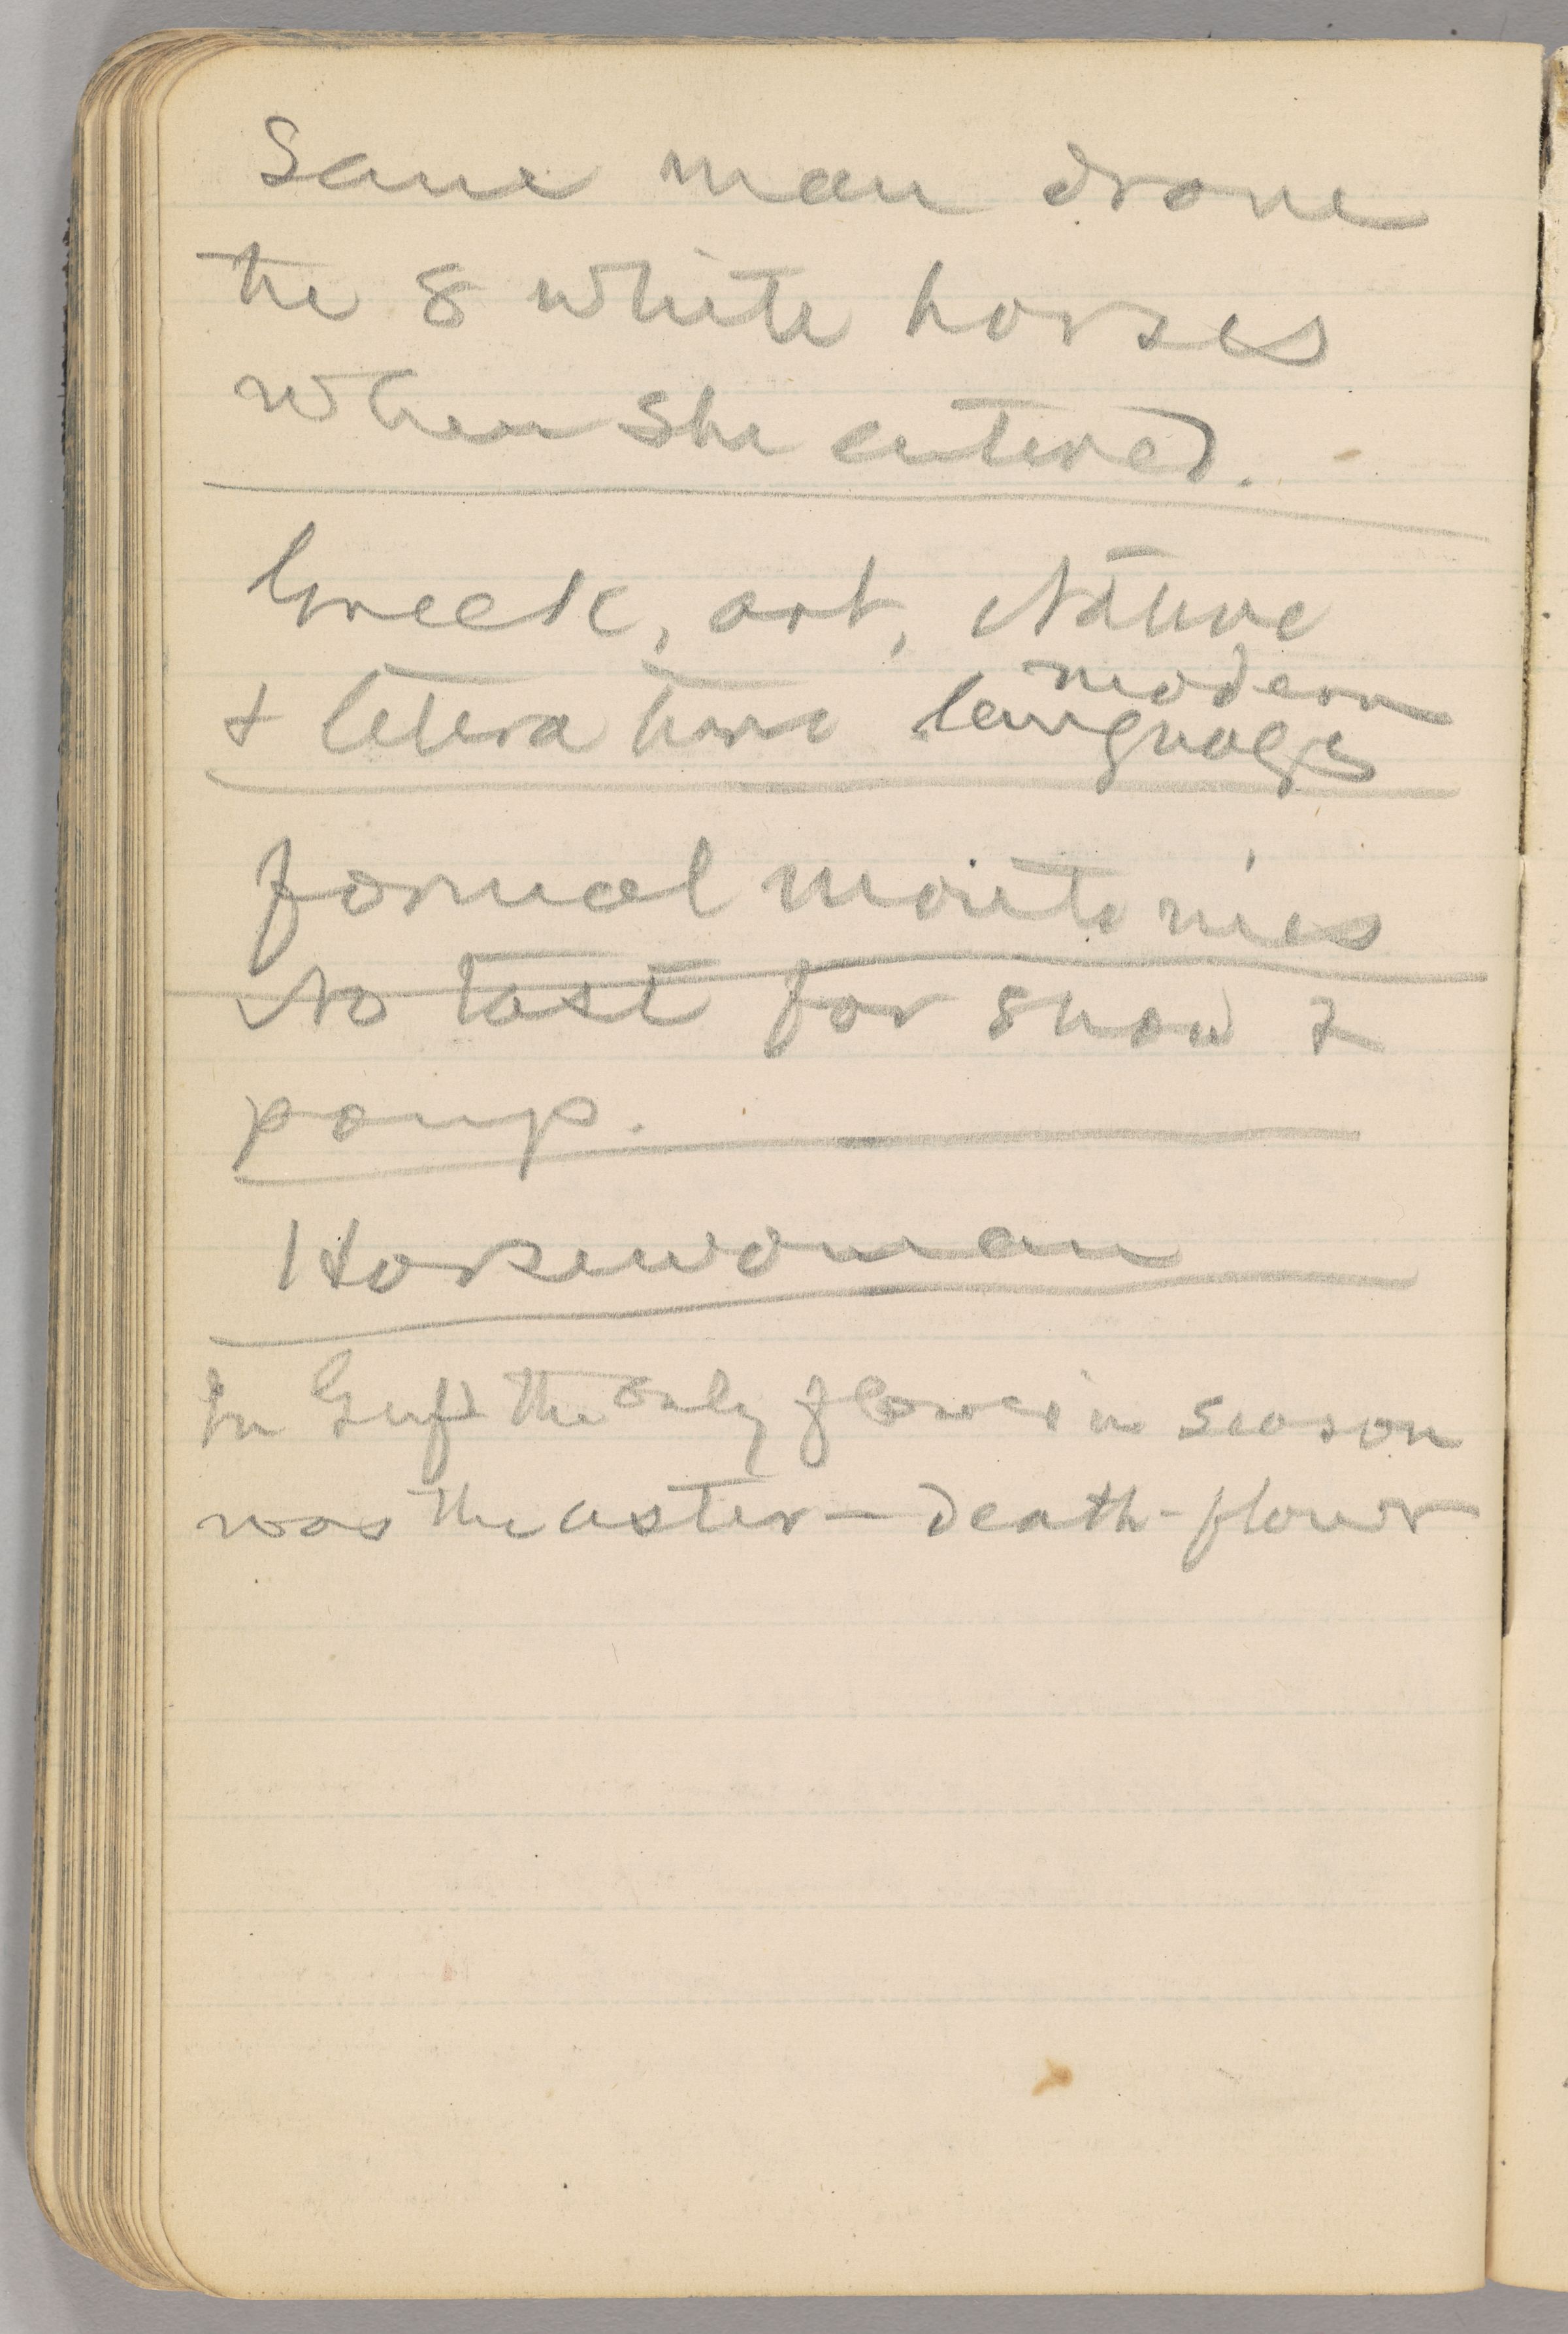 Same man drove
the 8 white horses
when she entered.
Greek, art, Nature
modern
& literature languages
formal monotonies
No tast for show &
pomp.
Horsewoman
In the only flower in season
was the aster – death-flower